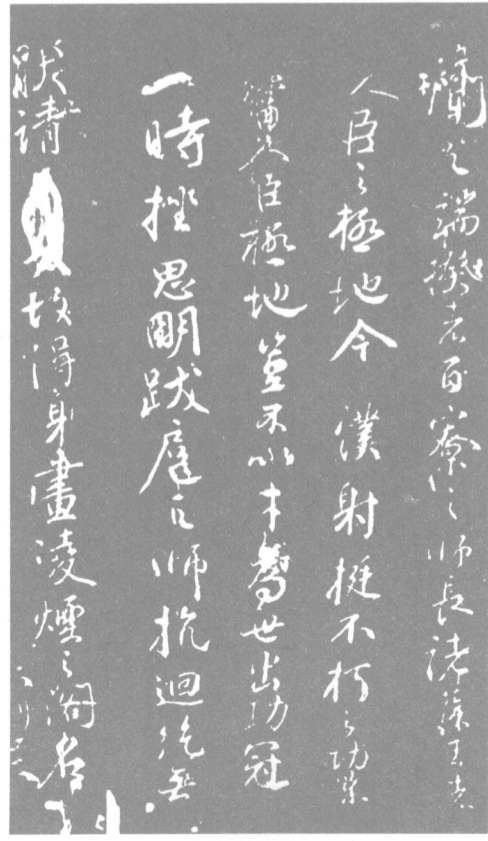 聞之端揆者百寮之師長諸侯王者
人臣之極地今僕射挺不朽之功業
當人臣極地豈不以才為世出功冠
一時挫思明跋扈之師抗迴紇無
厭之請故得身畫凌煙之閣名